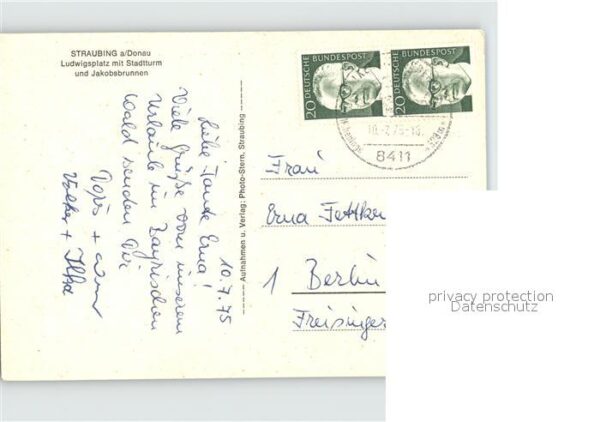 STRAUBING a/Donau
Ludwigsplatz mit Stadtturm
und Jakobsbrunnen
10.7.75
Liebe Tante Erna!
Viele Grüße von unserem
Urlaub im Bayrischen
Wald senden Dir
Volker + Ilka
Aufnahmen u. Verlag: Photo-Stern, Straubing
20 DEUTSCHE BUNDESPOST
20 DEUTSCHE BUNDESPOST
8411
Frau
Erna
1 Berlin
Freisinger
privacy protection
Datenschutz